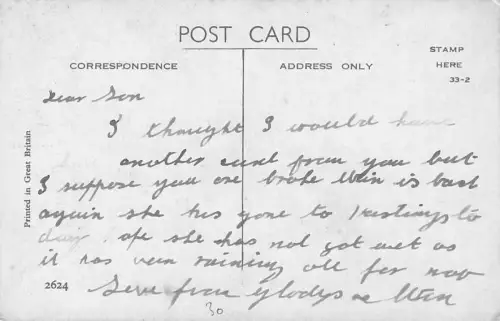 POST CARD
CORRESPONDENCE
ADDRESS ONLY
STAMP
HERE
33-2
Printed in Great Britain
Dear Son
I thought I would have
another card from you but
I suppose you are broke is back
again she has gone to Hastings to
day. she has not got wet as
it has been raining all for
from Gladys
2624
30